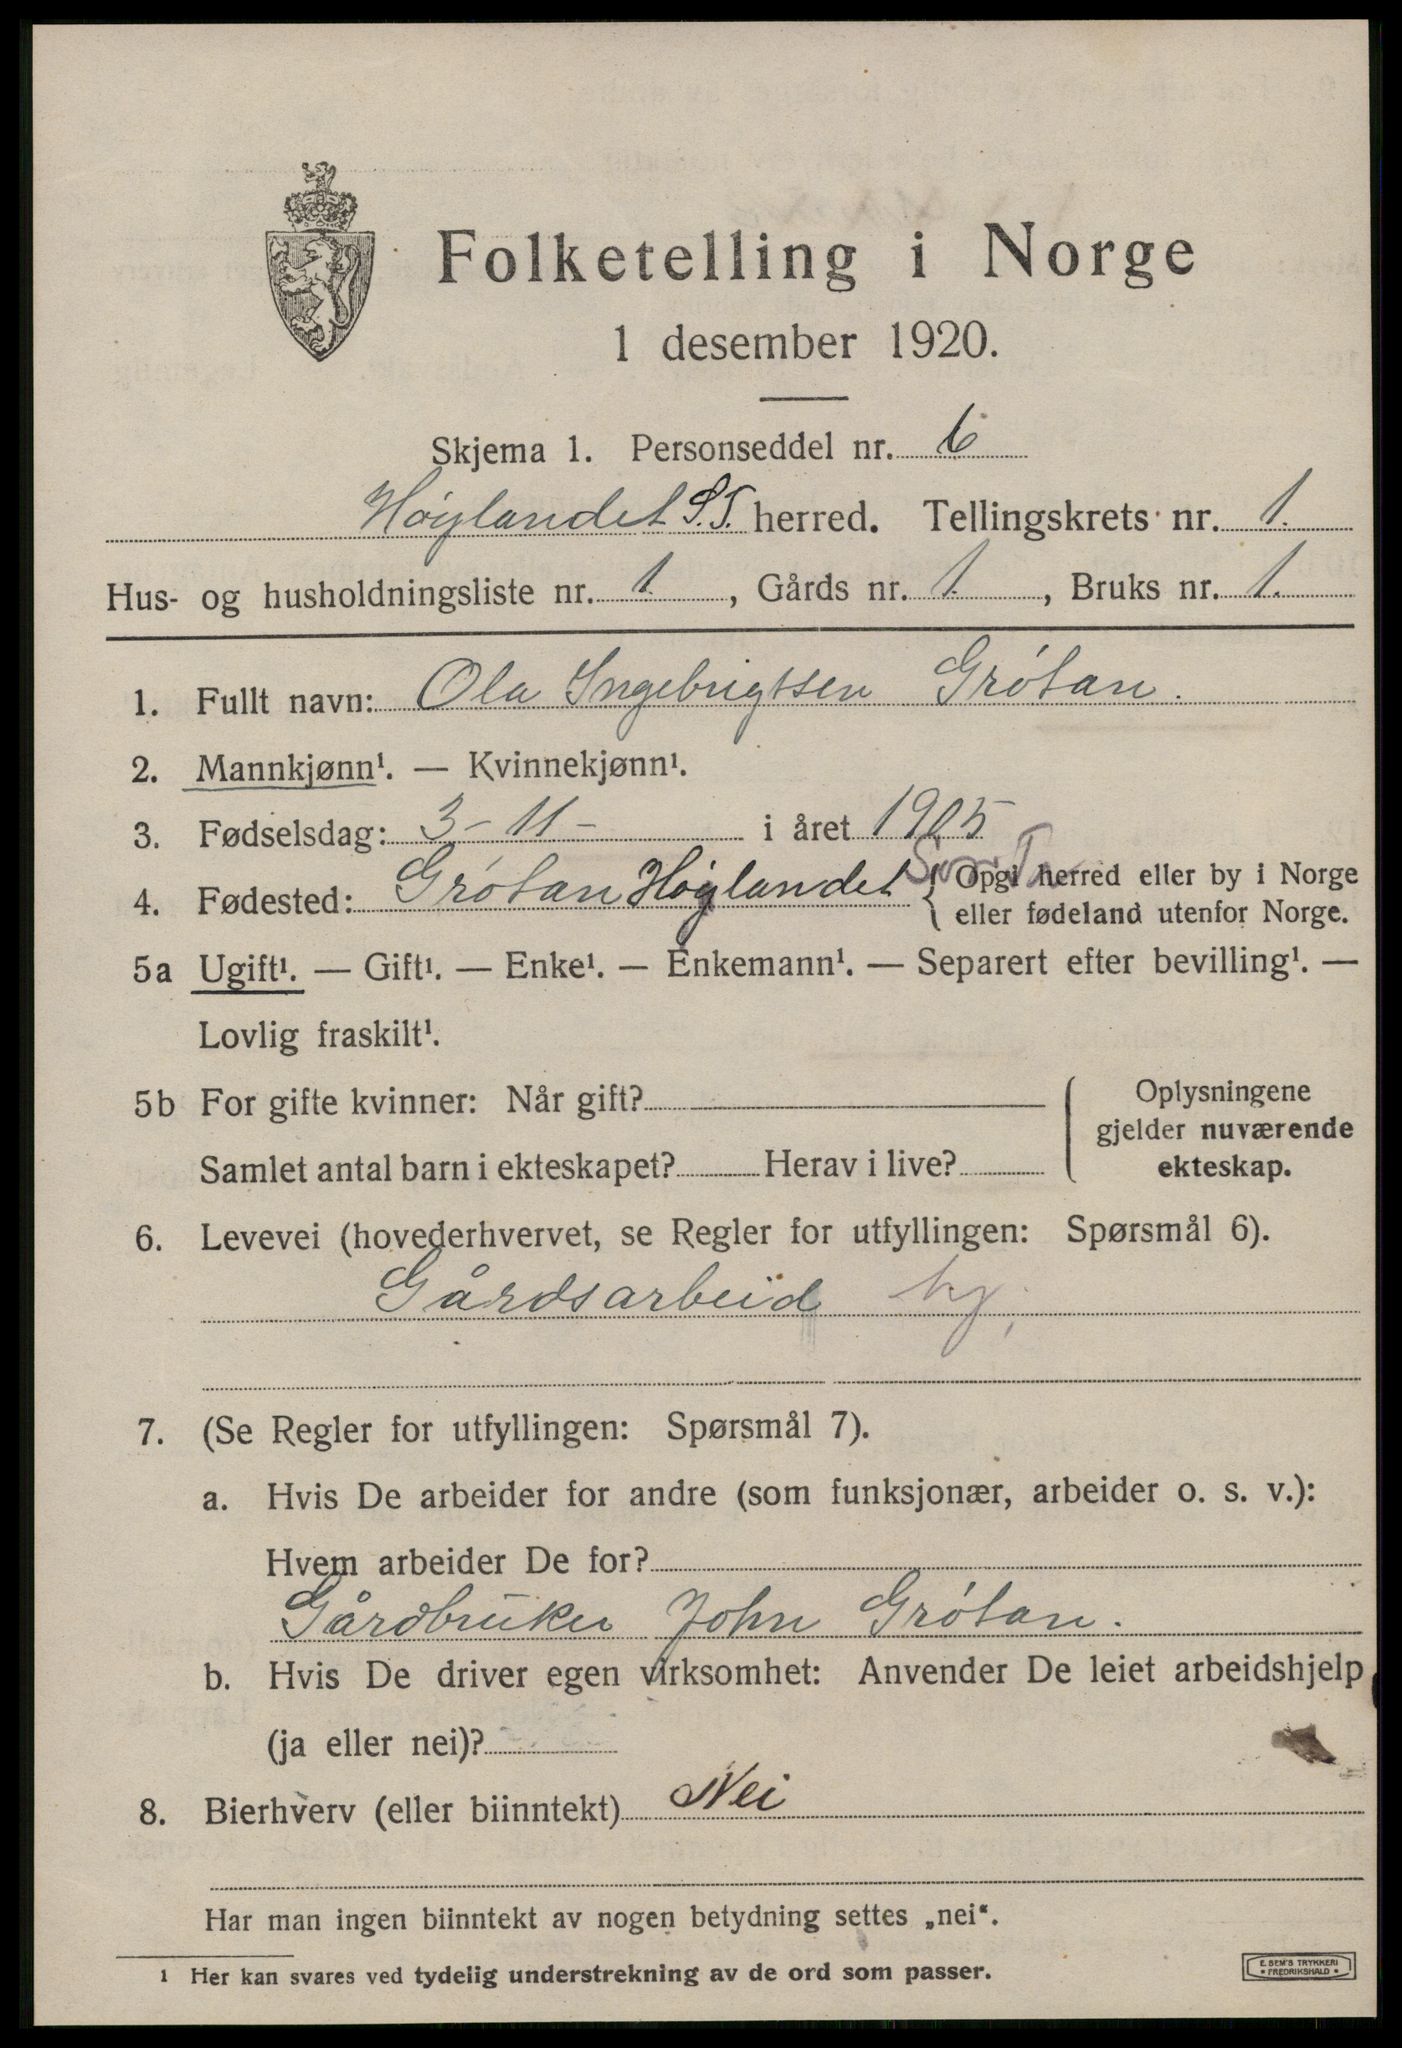 Folketelling i Norge
1 desember 1920.
Skjema 1. Personseddel nr. 6
Høylandet S.T. herred. Tellingskrets nr. 1.
Hus- og husholdningsliste nr. 1., Gårds nr. 1., Bruks nr. 1.
1. Fullt navn: Ola Ingebrigtsen Grótan.
2. Mannkjønn¹. — Kvinnekjønn¹.
3. Fødselsdag: 3-11- i året 1905
4. Fødested: Grótan Høylandet { Opgi herred eller by i Norge
eller fødeland utenfor Norge.
5a Ugift¹. — Gift¹. — Enke¹. — Enkemann¹. — Separert efter bevilling¹. —
Lovlig fraskilt¹.
5b For gifte kvinner: Når gift?
Samlet antal barn i ekteskapet? Herav i live?
Oplysningene
gjelder nuværende
ekteskap.
6. Levevei (hovederhvervet, se Regler for utfyllingen: Spørsmål 6).
Gårdsarbeid
7. (Se Regler for utfyllingen: Spørsmål 7).
a. Hvis De arbeider for andre (som funksjonær, arbeider o. s. v.):
Hvem arbeider De for?
Gårdbruker John Grótan.
b. Hvis De driver egen virksomhet: Anvender De leiet arbeidshjelp
(ja eller nei)?
8. Bierhverv (eller biinntekt) Nei
Har man ingen biinntekt av nogen betydning settes „nei“.
1 Her kan svares ved tydelig understrekning av de ord som passer.
E. SEM'S TRYKKERI
FREDRIKSHALD